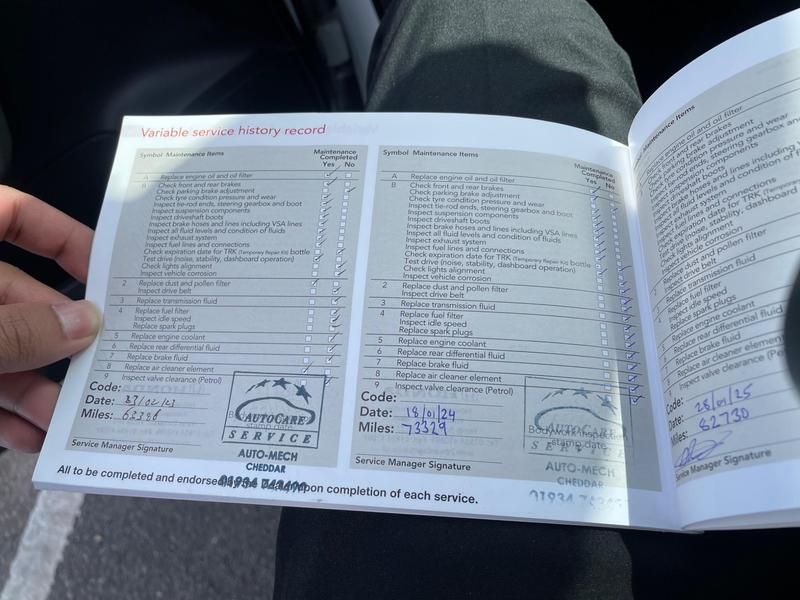 Variable service history record
Symbol Maintenance Items
Maintenance
Completed
Yes No
A Replace engine oil and oil filter
B Check front and rear brakes
Check parking brake adjustment
Check tyre condition pressure and wear
Inspect tie-rod ends, steering gearbox and boot
Inspect suspension components
Inspect driveshaft boots
Inspect brake hoses and lines including VSA lines
Inspect all fluid levels and condition of fluids
Inspect exhaust system
Inspect fuel lines and connections
Check expiration date for TRK (Temporary Repair Kit) bottle
Test drive (noise, stability, dashboard operation)
Check lights alignment
Inspect vehicle corrosion
2 Replace dust and pollen filter
Inspect drive belt
3 Replace transmission fluid
4 Replace fuel filter
Inspect idle speed
Replace spark plugs
5 Replace engine coolant
6 Replace rear differential fluid
7 Replace brake fluid
8 Replace air cleaner element
9 Inspect valve clearance (Petrol)
Code:
Date: 23/02/23
Miles:
AUTOCARE
SERVICE
AUTO-MECH
CHEDDAR
Service Manager Signature
Symbol Maintenance Items
Maintenance
Completed
Yes No
A Replace engine oil and oil filter
B Check front and rear brakes
Check parking brake adjustment
Check tyre condition pressure and wear
Inspect tie-rod ends, steering gearbox and boot
Inspect suspension components
Inspect driveshaft boots
Inspect brake hoses and lines including VSA lines
Inspect all fluid levels and condition of fluids
Inspect exhaust system
Inspect fuel lines and connections
Check expiration date for TRK (Temporary Repair Kit) bottle
Test drive (noise, stability, dashboard operation)
Check lights alignment
Inspect vehicle corrosion
2 Replace dust and pollen filter
Inspect drive belt
3 Replace transmission fluid
4 Replace fuel filter
Inspect idle speed
Replace spark plugs
5 Replace engine coolant
6 Replace rear differential fluid
7 Replace brake fluid
8 Replace air cleaner element
9 Inspect valve clearance (Petrol)
Code:
Date: 18/01/24
Miles: 73329
Bodywork Inspection
stamp date
AUTOCARE
SERVICE
AUTO-MECH
CHEDDAR
Service Manager Signature
All to be completed and endorsed by the upon completion of each service.
Maintenance Items
Replace engine oil and oil filter
rear brakes
brake adjustment
condition pressure and wear
ends, steering gearbox and
components
boots
hoses and lines including
levels and condition of
exhaust system
fuel lines and connections
expiration date for TRK
Test drive stability, dashboard
lights alignment
vehicle corrosion
dust and pollen filter
Inspect drive belt
Replace transmission fluid
Replace fuel filter
idle speed
Replace spark plugs
Replace engine coolant
Replace rear differential fluid
Replace brake fluid
Replace air cleaner element
Inspect valve clearance
Code:
Date: 28/01/25
Miles: 82730
Service Manager Signature